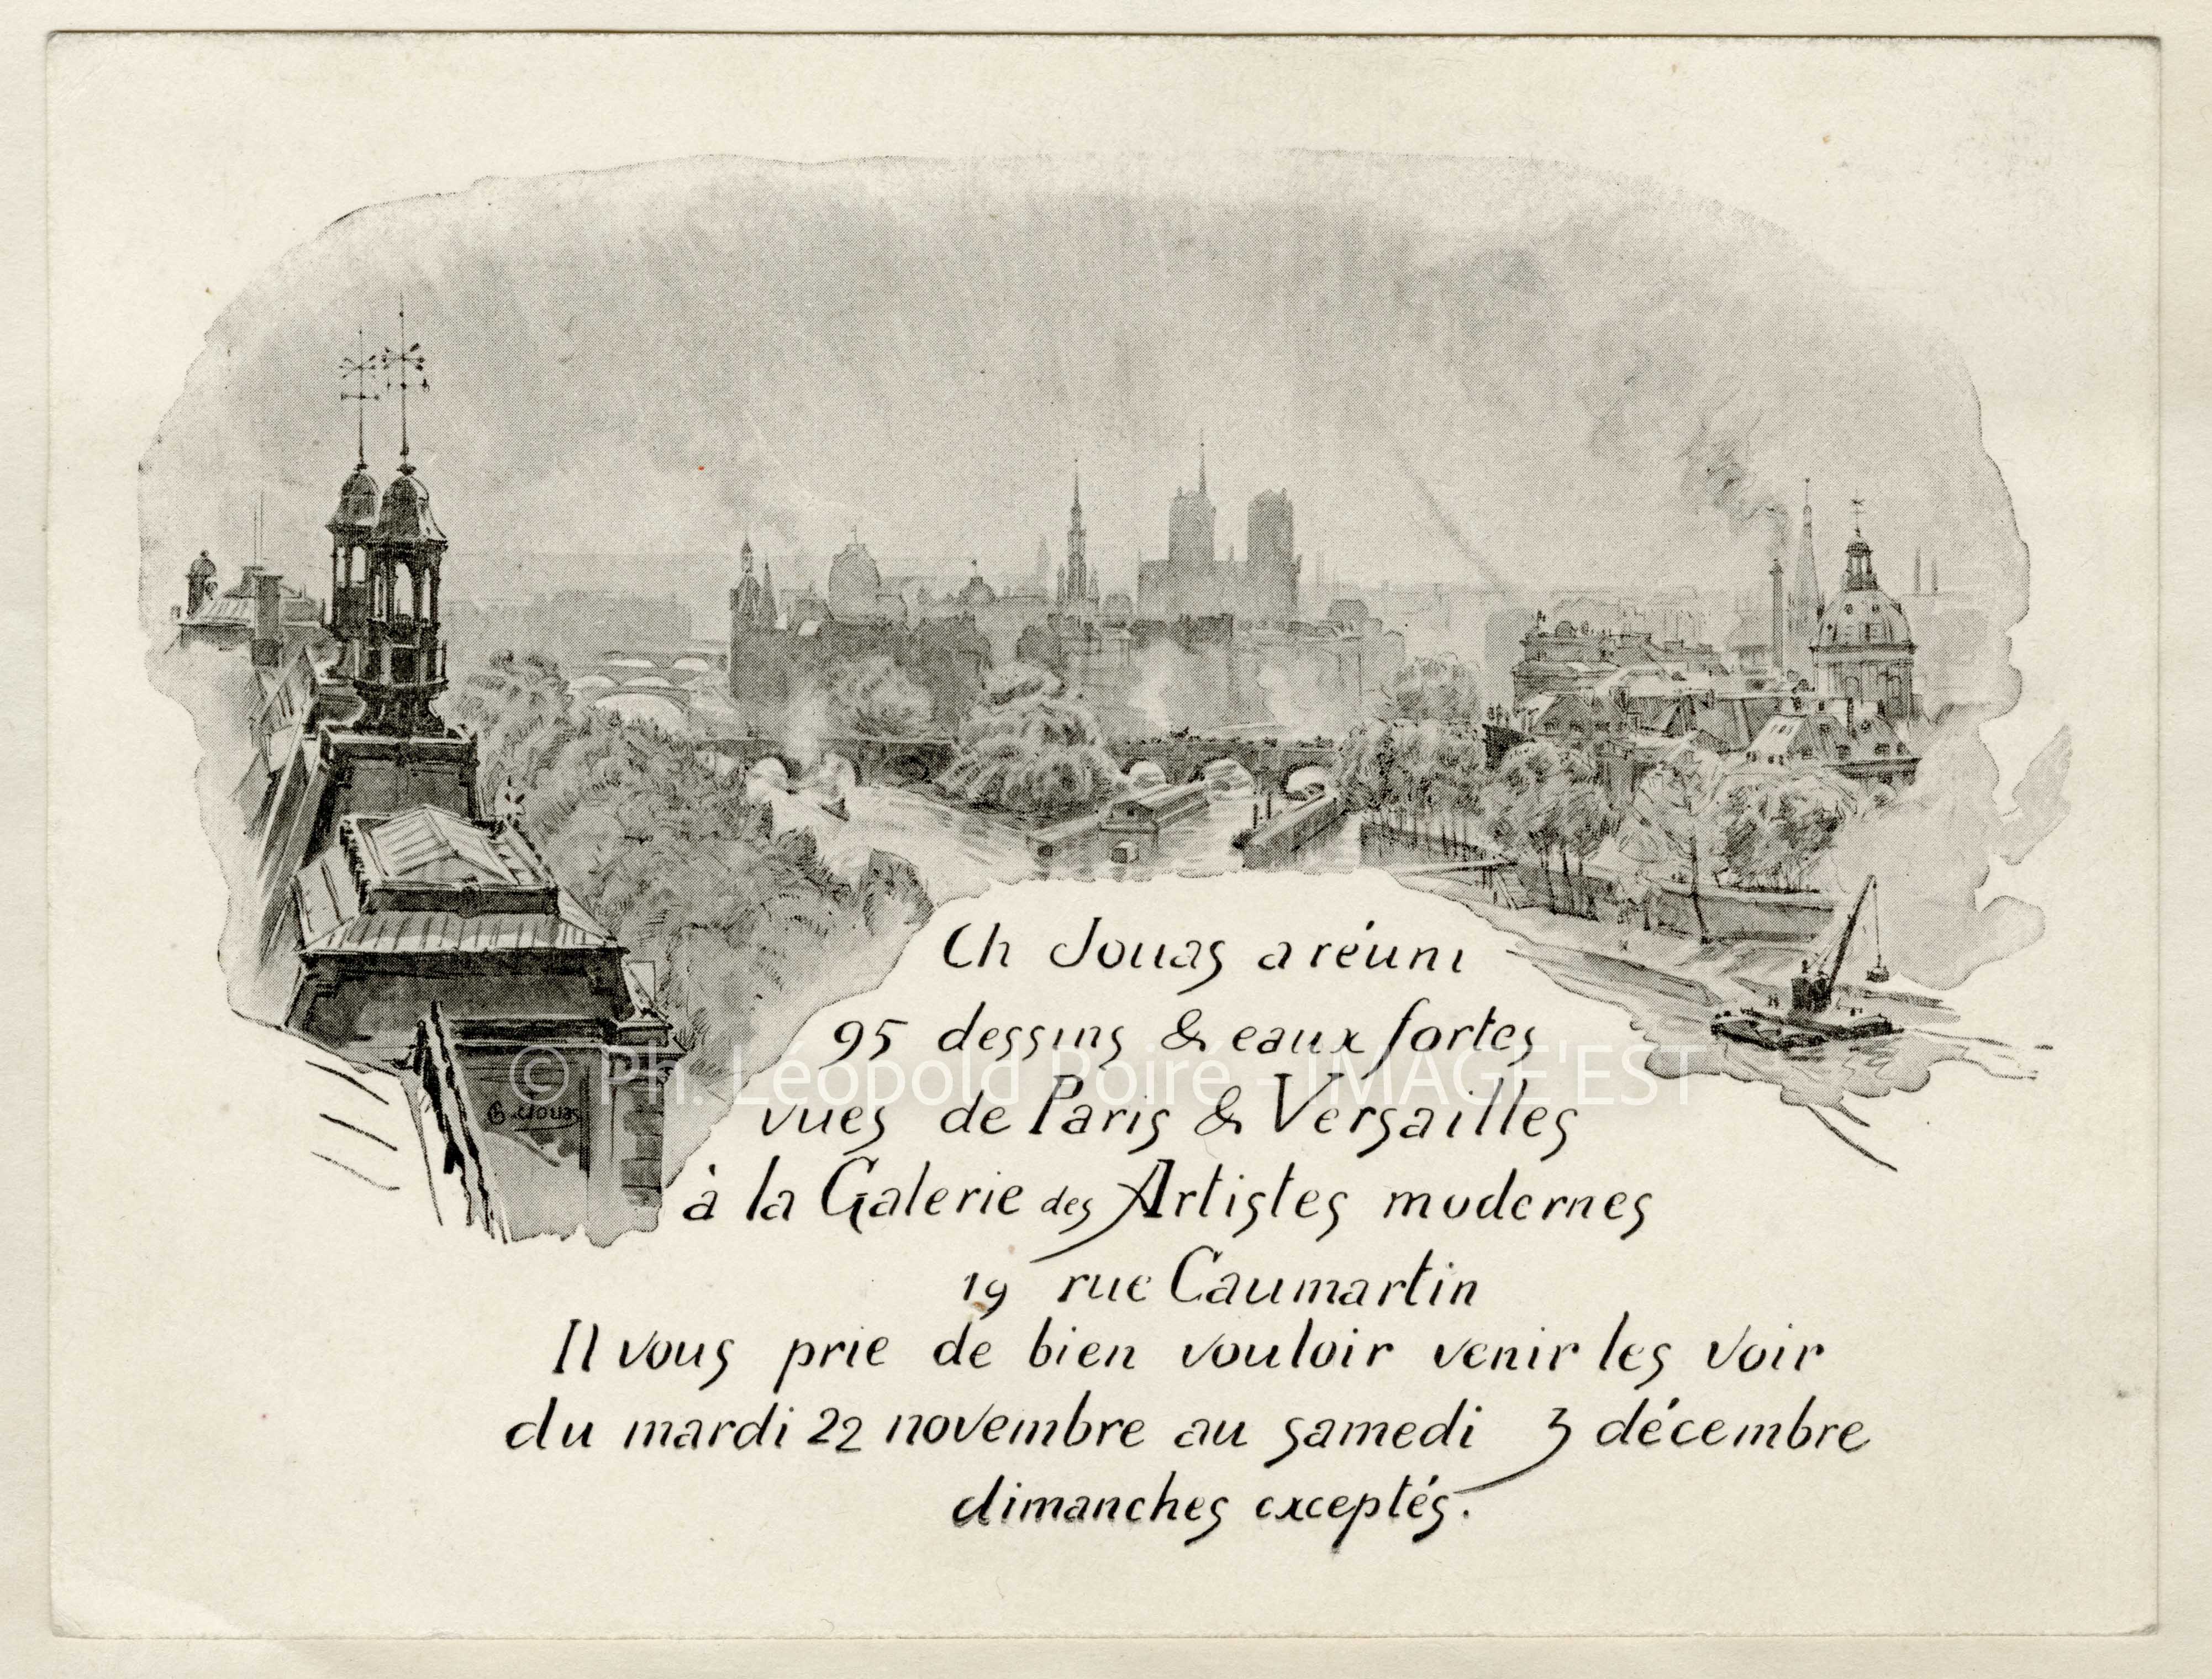 Ch Jouas a réuni
95 dessins & eaux fortes
© Ph. Léopold Poiré - IMAGE'EST
Ch. Jouas
vues de Paris & Versailles
à la Galerie des Artistes modernes
19 rue Caumartin
Il vous prie de bien vouloir venir les voir
du mardi 22 novembre au samedi 3 décembre
dimanches exceptés.